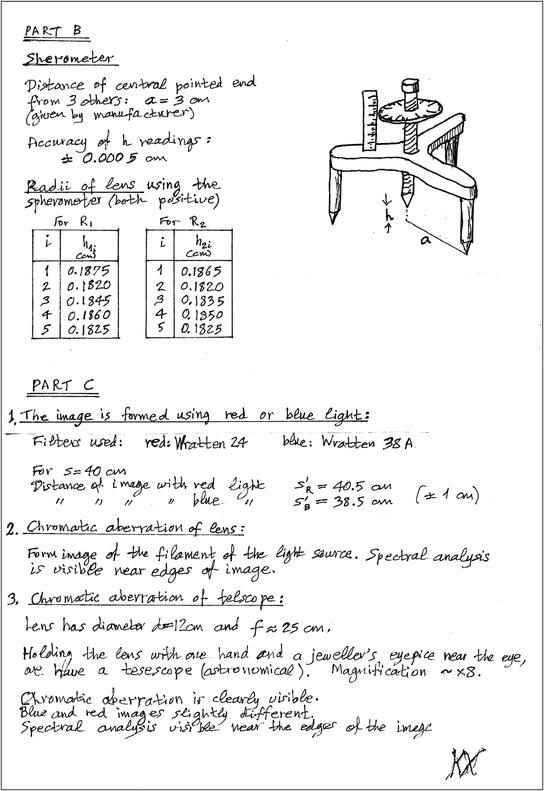 PART B
Sherometer
Distance of central pointed end
from 3 others: a = 3 cm
(given by manufacturer)
Accuracy of h readings:
± 0.0005 cm
Radii of lens using the
spherometer (both positive)
For R1 For R2
i h1i (cm) i h2i (cm)
1 0.1875 1 0.1865
2 0.1820 2 0.1820
3 0.1845 3 0.1835
4 0.1860 4 0.1850
5 0.1825 5 0.1825
h
a
PART C
1. The image is formed using red or blue light:
Filters used: red: Wratten 24 blue: Wratten 38A
For s = 40 cm
Distance of image with red light s'R = 40.5 cm
" " " " blue " s'B = 38.5 cm (± 1 cm)
2. Chromatic aberration of lens:
Form image of the filament of the light source. Spectral analysis
is visible near edges of image.
3. Chromatic aberration of telscope:
Lens has diameter d=12cm and f ≈ 25 cm.
Holding the lens with one hand and a jeweller's eyepice near the eye,
we have a tesescope (astronomical). Magnification ~ x8.
Chromatic aberration is clearly visible.
Blue and red images slightly different.
Spectral analysis visible near the edges of the image